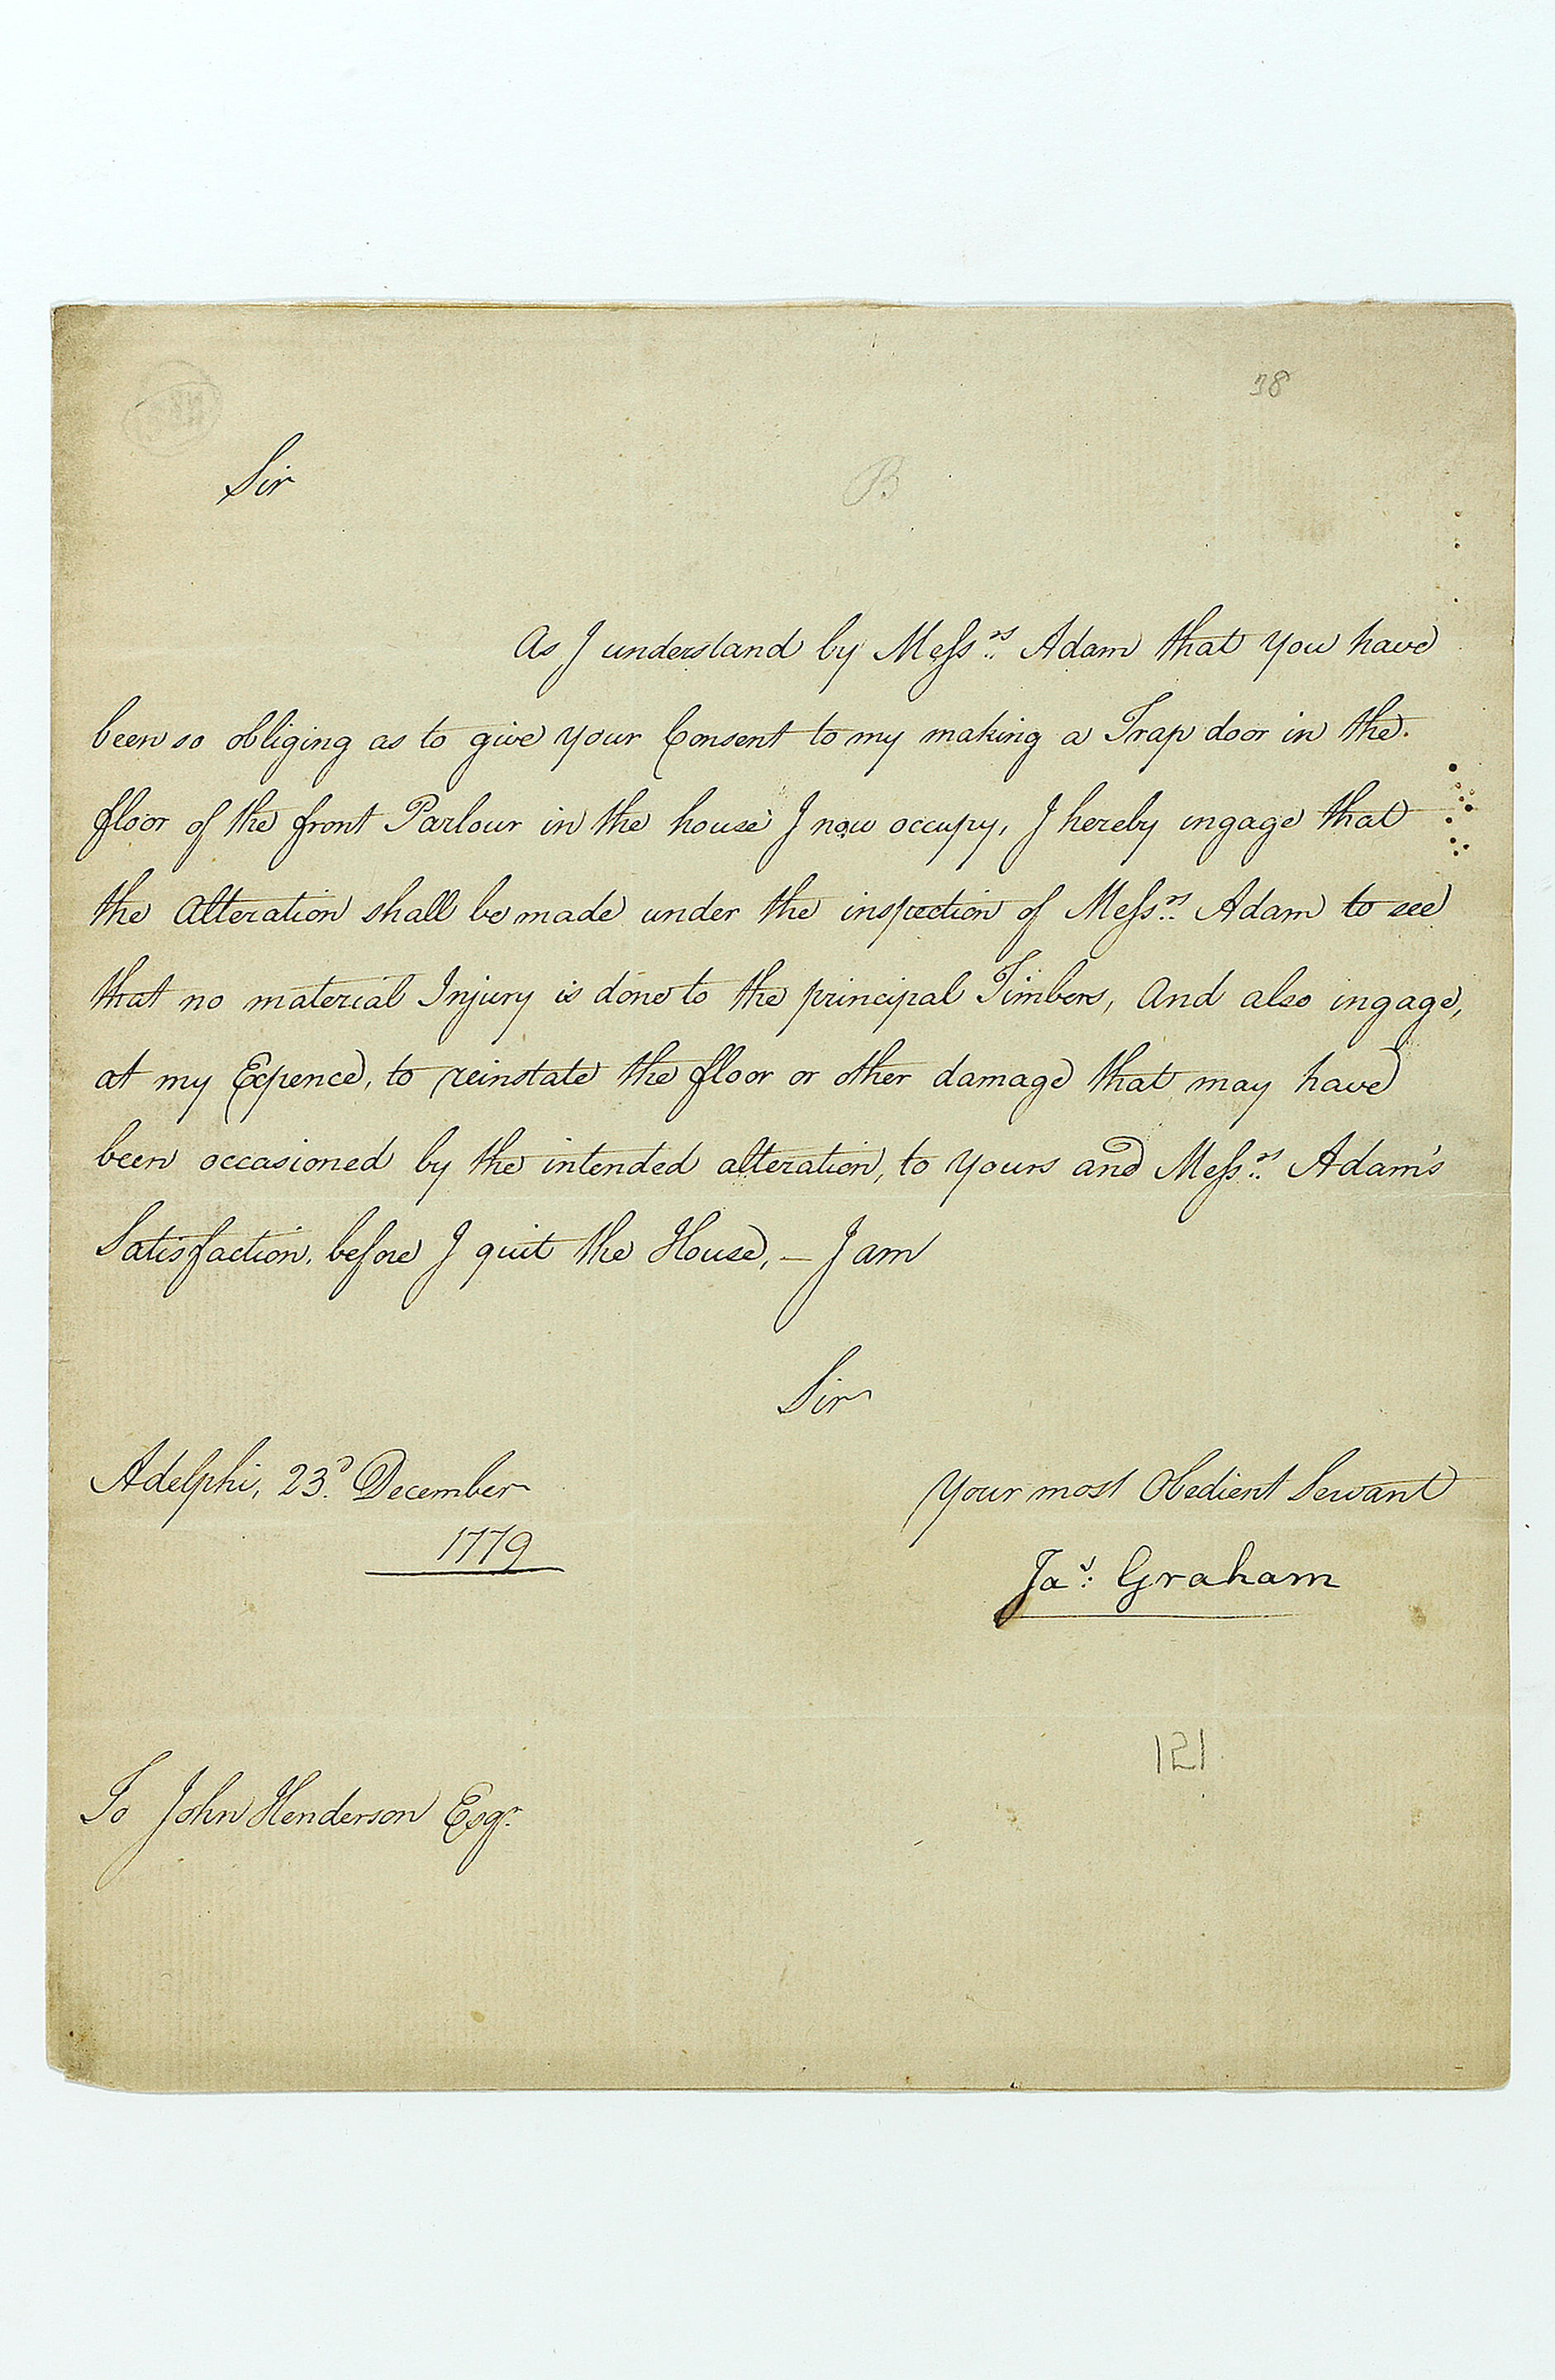 38
Sir
B
As I understand by Messrs. Adam that you have
been so obliging as to give your Consent to my making a Trap door in the
floor of the front Parlour in the house I now occupy, I hereby ingage that
the Alteration shall be made under the inspection of Messrs. Adam to see
that no material Injury is done to the principal Timbers, And also ingage,
at my Expence, to reinstate the floor or other damage that may have
been occasioned by the intended alteration, to yours and Messrs. Adam's
Satisfaction, before I quit the House, – I am
Sir
Adelphi, 23d. December
1779
Your most Obedient Servant
Jas: Graham
121
To John Henderson Esqr.